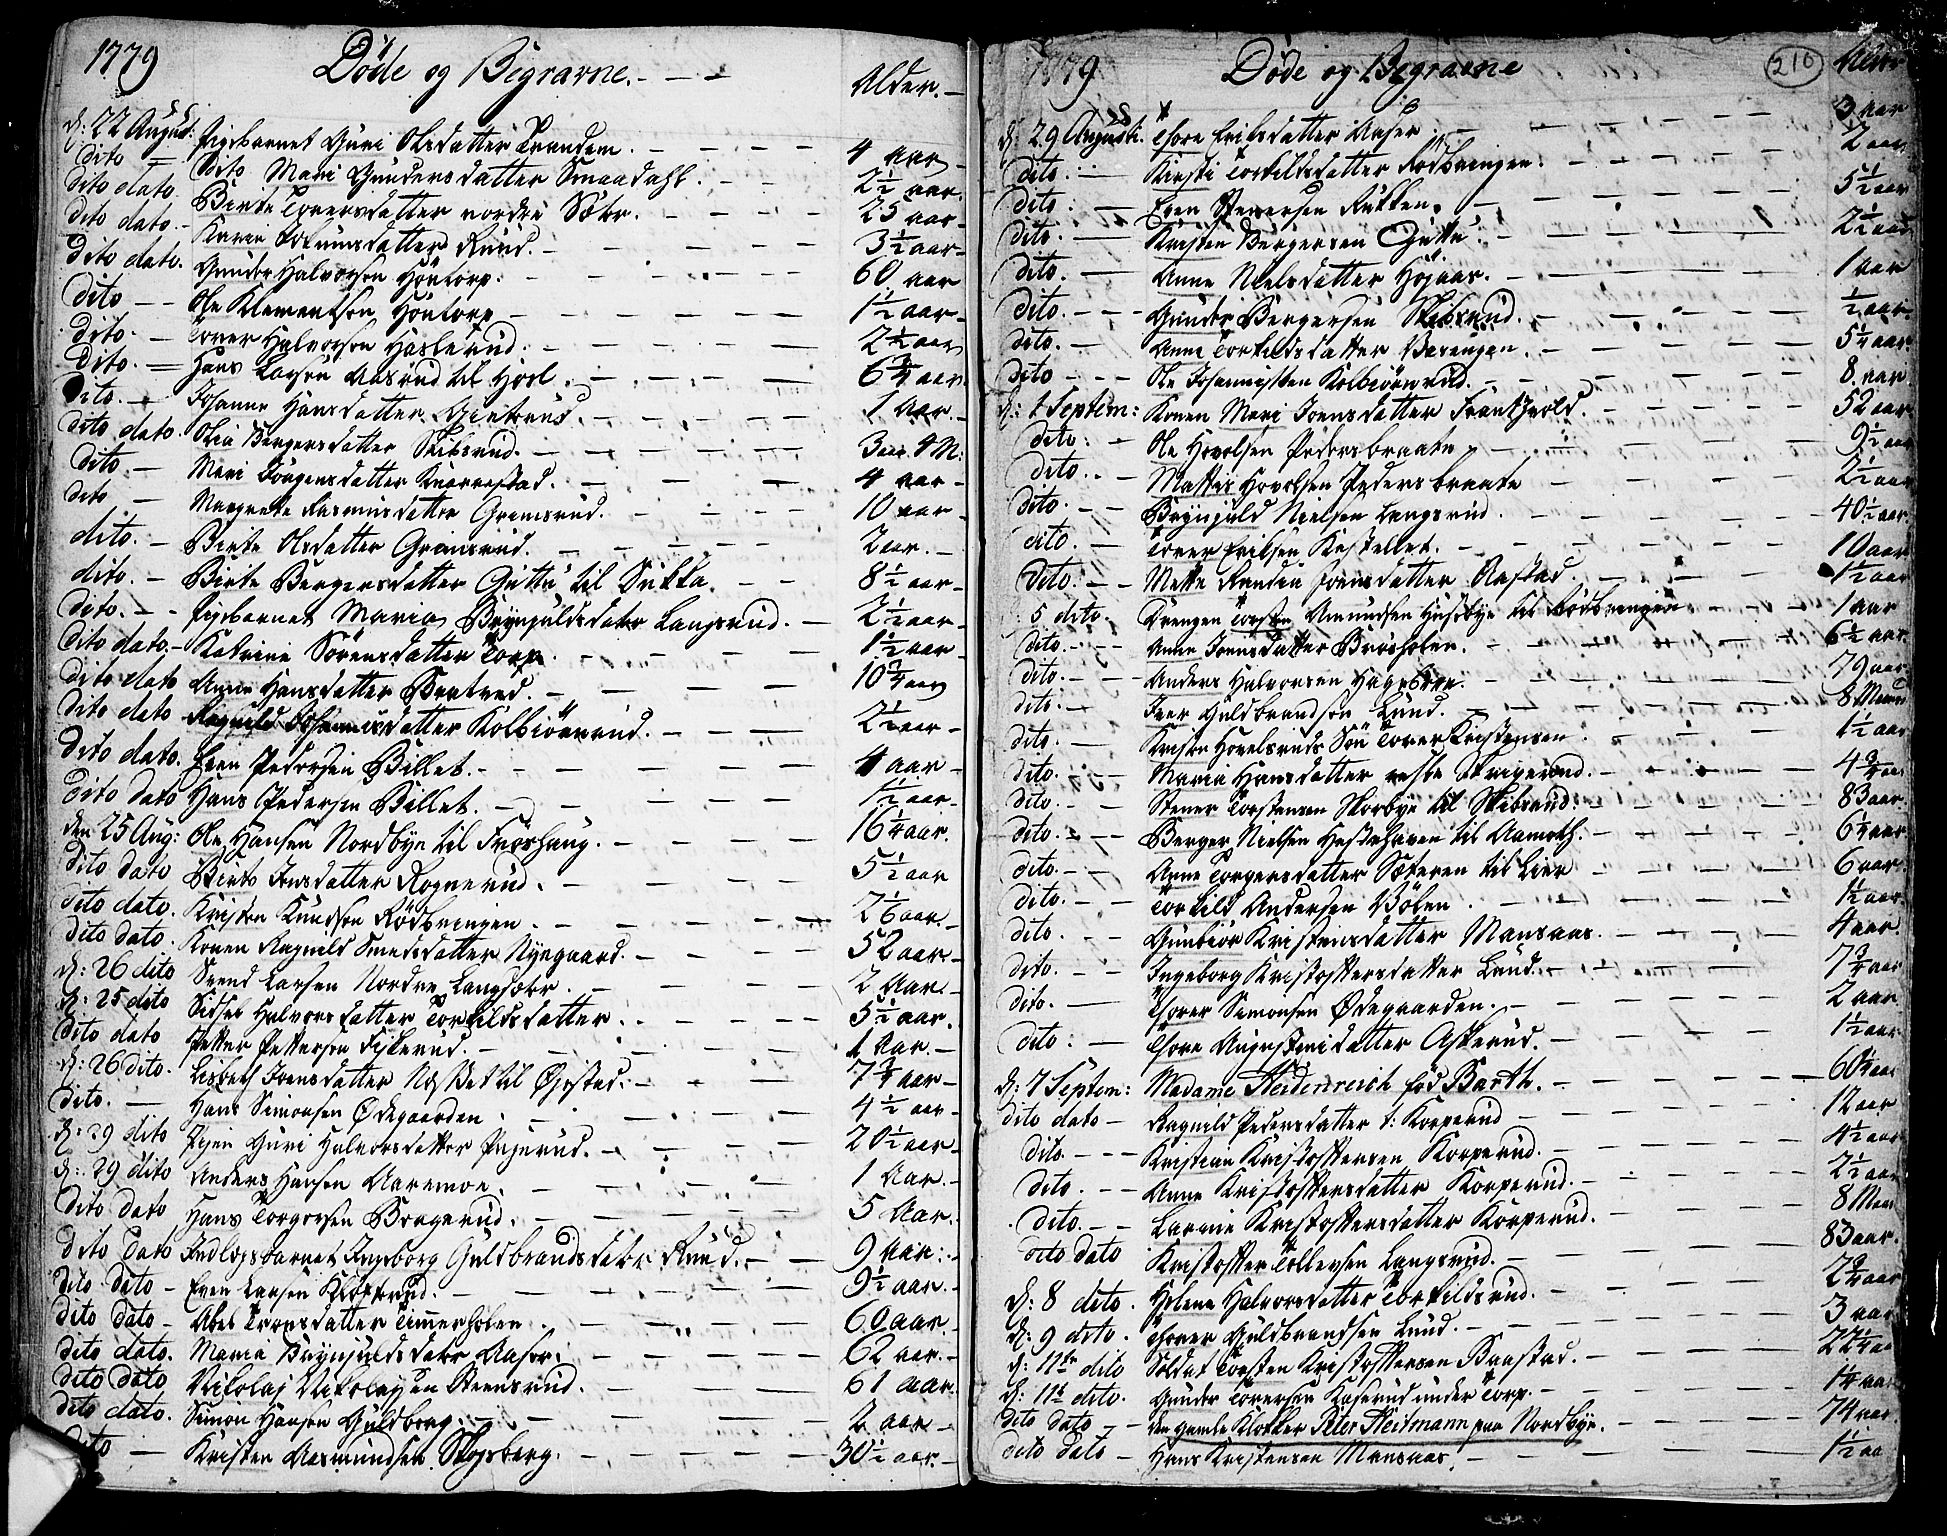 1779 Døde og Begravne. Alder.
d: 22 August: Pigebarnet Guri Olsdatter Trandem. 4 aar
dito Dito Mari Gundersdatter Smaadahl. 2½ aar
dito dato. Birte Torersdatter nordre Sæbr. 25 aar
dito dato. Karen Datter Ruud. 3½ aar
dito dato. Gunder Halvorsen Höntorp. 60 aar
dito Ole Klementsen Höntorp 1½ aar
dito. Torer Halvorsen Haslerud. 2¼ aar
dito. Hans Larsen Aasrud til Hösl. 6¾ aar
dito. Johanne Hansdatter Gintrud. 1 Aar
dito dato. Olia Bergersdatter Skibsrud. 3 aar 4 M:
dito. Mari Jörgensdatter Knarrestad. 4 aar
dito Margrete Rasmusdatter Gremsrud. 10 aar
dito. Birte Olsdatter Gremsrud. 2 aar.
dito. Birte Bergersdatter Guttu til Sukka. 8½ aar
dito. Pigebarnet Maria Brynjulsdatr Langsrud. 2½ aar
dito dato. Katrine Sörensdatter Torp. 1½ aar
dito dato Anne Hansdatter Bratrud. 10¾ aar
dito dato Ragnild Johannisdatter Kolbiörnrud. 2½ aar
dito dato. Even Pedersen Billet. 4 aar
dito dato Hans Pedersen Billet. 1½ aar
den 25 Aug: Ole Hansen Nordbye til Fröshaug. 16¼ aar.
dito dato Birte Jensdatter Rognerud. 5½ aar
dito dato. Kristen Knudsen Rödbringen 2⅙ aar
dito dato. Konen Ragnild Knudsdatter Nyegaard. 52 aar
d: 26 dito Svend Larsen Nordre Langsæbr. 2 Aar.
d: 25 dito Sidsel Halvorsdatter Torkildsdatter. 5½ aar.
dito dato Petter Pettersen Fiskerud. 1 Aar.
d: 26 dito. Lisbeth Jensdatter Næsset til Øistad. 7¾ aar
dito. Hans Simonsen Ødegaarden 4½ aar
d: 29 dito Pigen Guri Halvorsdatter Pajerud. 20½ aar
d: 29 dito Anders Hansen Aaremoe. 1 Aar.
dito dato Hans Torgersen Bragerud. 5 Aar.
dito dato Indlogsbarnet Ingeborg Guldbrandsdatr Ruud. 9 aar.
dito dato Even Larsen Klöftrud. 9½ aar.
dito dato Abel Tronsdatter Timerholen. 60 aar.
dito dato. Maria Brynjulsdatr Aaser. 62 aar.
dito dato Nikolaj Nikolajsen Steensrud. 61 aar.
dito dato. Simon Hansen Guldborg. 2 aar
dito Kristen Aasmundsen Skogsberg. 30½ aar.
1779 Døde og Begravne Alder 210
d: 29 Augusti. Thore Eriksdatter Aaser 3 aar
dito. Kirsti Torkildsdatter Rödbringen. ½ aar
dito: Even Stenersen Rukken. 5½ aar
dito. Kristen Bergersen Guttu. 2½ aar
dito. Anne Nielsdatter Höjaas. 1 aar
dito. Gunder Bergersen Skibsrud. ½ aar.
dito. Anne Torkildsdatter Berengen. 5¼ aar
dito Ole Johannissen Kolbiörnrud. 8 aar
d: 1 Septem: Konen Mari Jensdatter Frantzvold. 52 aar
dito: Ole Hovelsen Pedersbraate. 9½ aar
dito. Mattis Hovelsen Pedersbraate 2½ aar
dito. Brynjuld Nielsen Langsrud. 40½ aar.
dito. Torer Eriksen Kastellet. 10 aar
dito. Mette Randia Jensdatter Aastad. 1½ aar
5 dito. Drengen Torsten Amundsen Huseby til Rödbringen 1 aar
dito. Anne Jensdatter Bröholen. 6½ aar
dito. Anders Halvorsen Hageböen. 79 aar
dito. Iver Guldbrandsen Lund. 8 Maan
dito. Kristen Hovelsruds Sön Torer Kristensen. 1½ aar
dito. Maria Hansdatter vestre Skrigerud. 4¾ aar
dito. Stener Torstensen Skorbye til Skibsrud. 83 aar.
dito. Berger Nielsen Hestehaven til Aamoth. 6¼ aar.
dito. Anne Torgersdatter Sæteren til Lier 6 aar.
dito. Torkild Andersen Bölen. 1½ aar.
dito. Gunbiör Kristensdatter Mansaas. 4 aar.
dito. Ingeborg Kristoffersdatter Lund. 7¾ aar
dito. Thorer Simonsen Ødegaarden. 2 aar
dito: Thore Augustinidatter Askerud. 1½ aar
d: 7 Septem: Madame Heidenreich fød Barth. 60¼ aar
dito dato Ragnild Pedersdatter t: Korperud 12 aar
dito. Kristian Kristoffersen Korperud. 4½ aar
dito. Anne Kristoffersdatter Korperud. 2½ aar
dito. Larine Kristoffersdatter Korperud. 8 Maan
dito dato Kristoffer Tollevsen Langsrud. 83 aar.
d: 8 dito. Helena Halvorsdatter Torkildsrud. 2¾ aar
d: 9 dito. Thorer Guldbrandsen Lund. 3 aar
d: 11te dito Soldat Torsten Kristoffersen Baastad. 22½ aar
d: 11t dito. Gunder Torersen Kaserud under Torp. 1¼ aar
dito dato Den gamle Klokker Peter Heitmann paa Nordbye. 74 aar.
dito dito Hans Kristensen Mansaas. 1½ aa